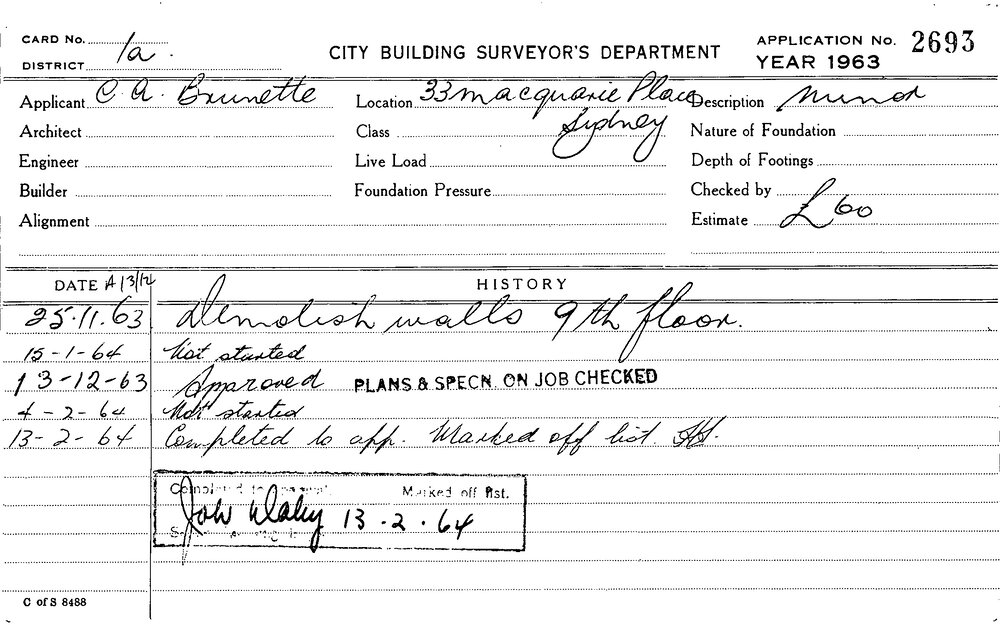 CARD No.
DISTRICT 1a.
CITY BUILDING SURVEYOR'S DEPARTMENT
APPLICATION No. 2693
YEAR 1963
Applicant C. A. Brunette
Location 33 Macquarie Place
Sydney
Description Minor
Architect
Class
Nature of Foundation
Engineer
Live Load
Depth of Footings
Builder
Foundation Pressure
Checked by
Alignment
Estimate £60
DATE A 13/12
HISTORY
25.11.63 Demolish walls 9th floor.
15-1-64 Not started
13-12-63 Approved PLANS & SPECN. ON JOB CHECKED
4-2-64 Not started
13-2-64 Completed to app. Marked off list
Completed to Marked off list.
13.2.64
C of S 8488